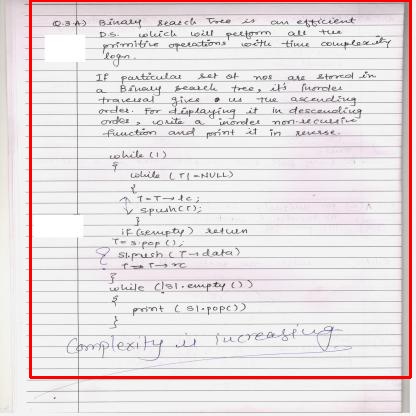 Q.3 A) Binary Search Tree is an efficient
D.S. which will perform all the
primitive operations with time complexity
logn.
If particular set of nos are stored in
a Binary search tree, it's inorder
traversal gives us the ascending
order. For displaying it in descending
order, write a inorder non-recursive
function and print it in reverse.
while (1)
{
while (T!=NULL)
{
T=T→lc;
spush(T);
}
if (sempty) return
T=s.pop();
S1.push (T→data)
T=T→rc
}
while (!S1.empty())
{
print (S1.pop())
}
Complexity is increasing